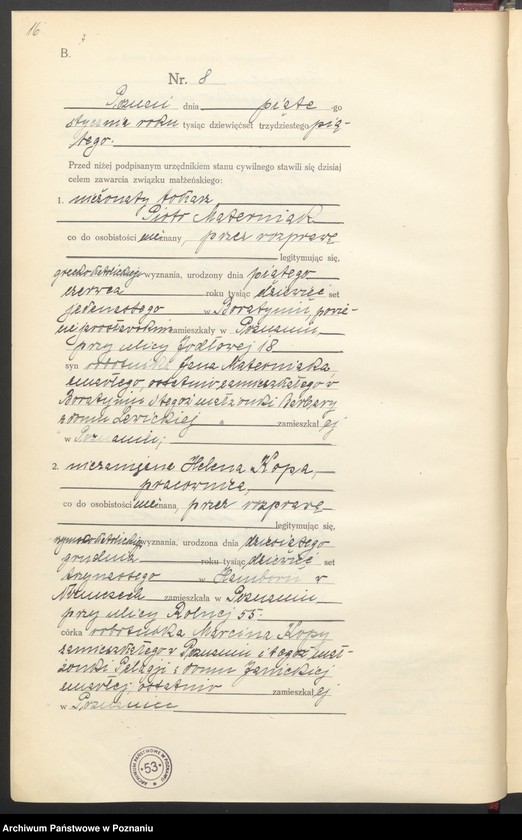 16
7
B.
Nr. 8
Poznań dnia piąte-go
stycznia roku tysiąc dziewięćset trzydziestego pią-
tego.
Przed niżej podpisanym urzędnikiem stanu cywilnego stawili się dzisiaj
celem zawarcia związku małżeńskiego:
1. nieżonaty tokarz
Piotr Materniak
co do osobistości nieznany, przez rozprawę
legitymując się,
grecko katolickiego wyznania, urodzony dnia piątego
czerwca roku tysiąc dziewięćset
jedenastego w Boratynie, powie-
cie jarosławskim zamieszkały w Poznaniu,
przy ulicy Jodłowej 18
syn robotnika Jana Materniaka,
zmarłego, ostatnio zamieszkałego w
Boratynie i tegoż małżonki Barbary
z domu Lewickiej zamieszkałej
w Poznaniu;
2. niezamężna Helena Kopa,
pracownica,
co do osobistości nieznana, przez rozprawę
legitymując się,
rzymsko katolickiego wyznania, urodzona dnia dziesiątego
grudnia roku tysiąc dziewięćset
trzynastego w Hamborn w
Niemczech zamieszkała w Poznaniu
przy ulicy Rolnej 55
córka robotnika Marcina Kopy
zamieszkałego w Poznaniu i tegoż mał-
żonki Pelagji z domu Janickiej
zmarłej, ostatnio zamieszkałej
w Poznaniu
ARCHIWUM PAŃSTWOWE W POZNANIU
53
Archiwum Państwowe w Poznaniu